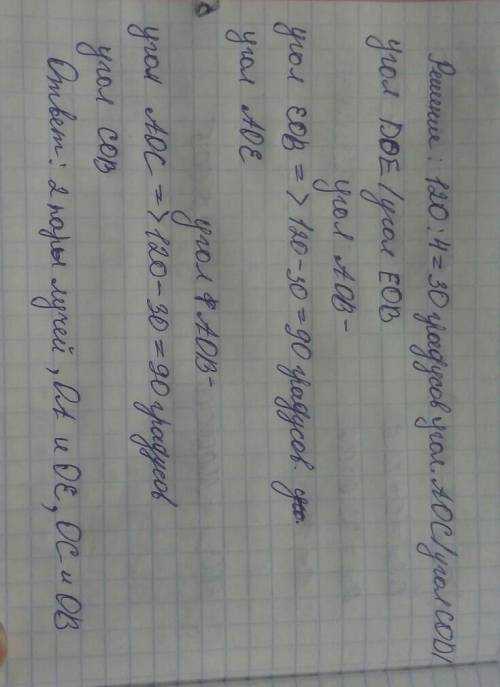 Решение: 120:4=30 градусов угол AOC/угол COD/
угол DOE/угол EOB
угол AOB-
угол EOB => 120-30=90 градусов.
угол AOE
угол AOB-
угол AOC => 120-30=90 градусов
угол COB
Ответ: 2 пары лучей, OA и OE, OC и OB